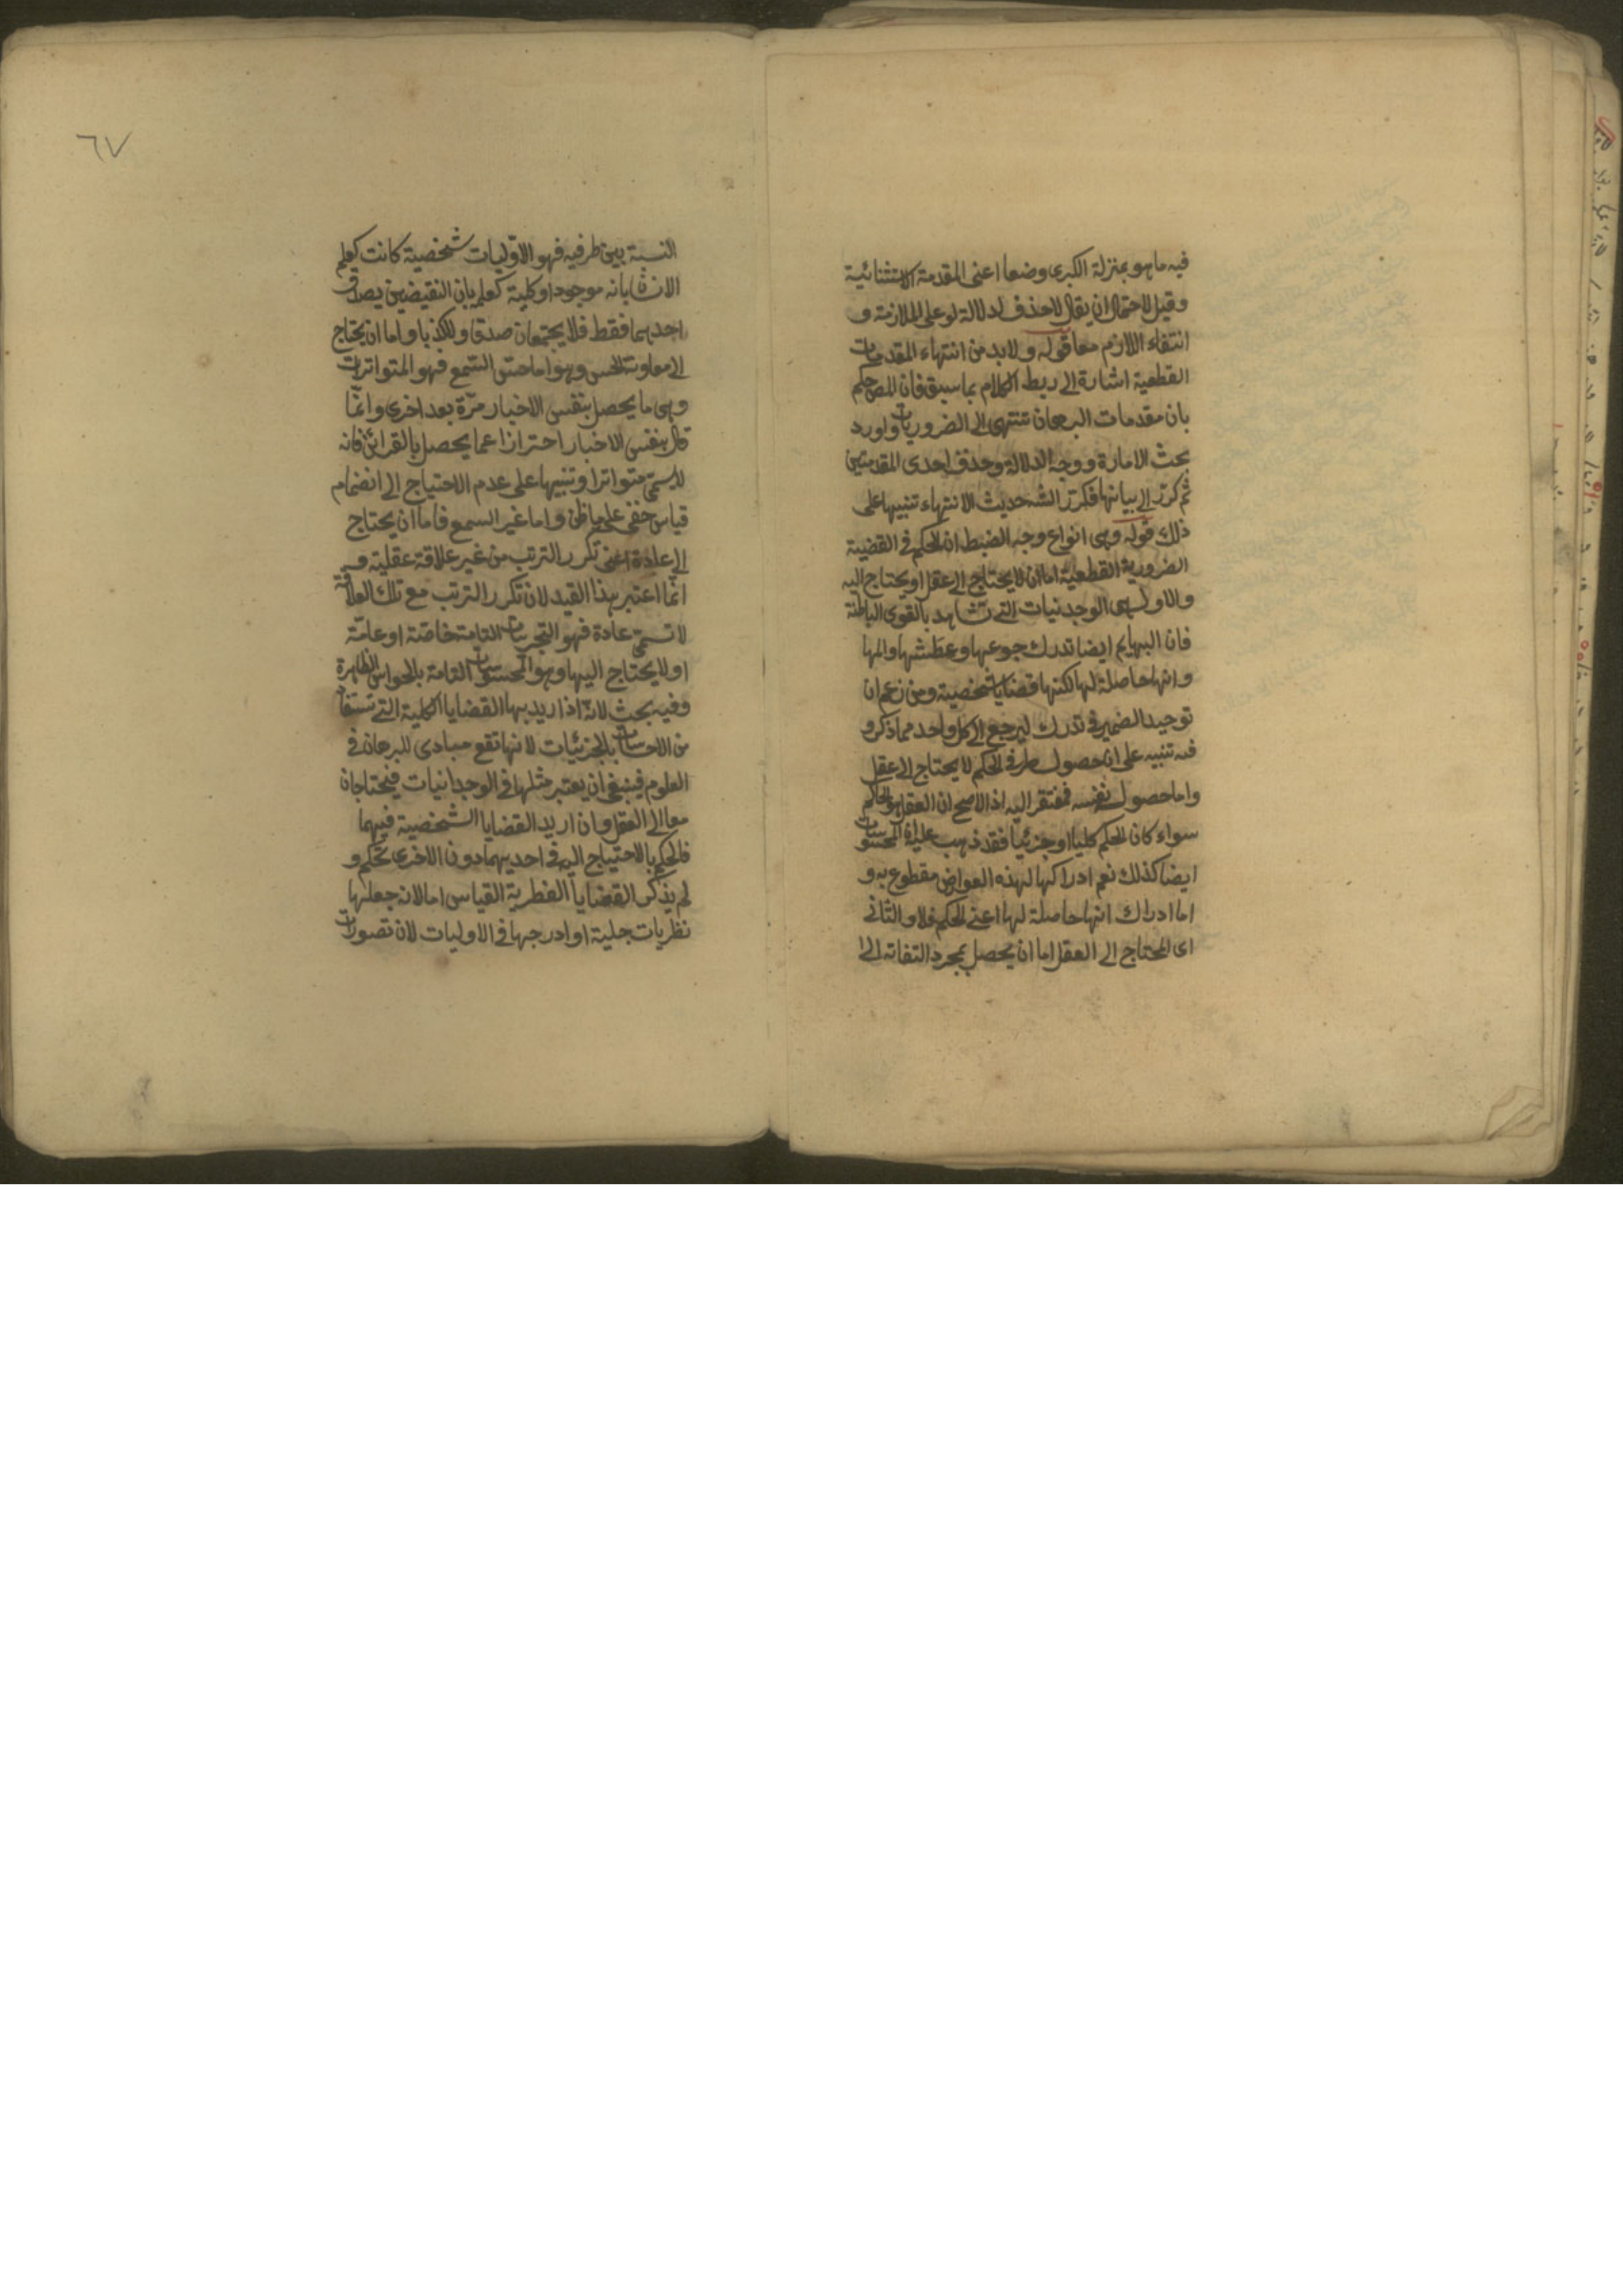 فيه ما هو بمنزلة الكبرى وضعا اعنى المقدمة الاستثنائية
وقيل لاحتمال ان يقال لا حذف لدلالة لو على الملازمة و
انتفاء اللازم معا قوله ولا بد من انتهاء المقدمات
القطعية اشارة الى ربط الكلام بما سبق فان المص حكم
بان مقدمات البرهان تنتهى الى الضروريات واورد
بحث الامارة ووجه الدلالة وحذف احدى المقدمتين
ثم كر الى بيانها فكرر الشه حديث الانتهاء تنبيها على
ذلك قوله وهى انواع وجه الضبط ان الحكم فى القضية
الضرورية القطعية اما ان لا يحتاج الى عقل او يحتاج اليه
والاول هى الوجدنيات التى تشاهد بالقوى الباطنة
فان البهايم ايضا تدرك جوعها وعطشها والمها
وانها حاصلة لها لكنها قضايا شخصية ومن زعم ان
توحيد الضمير فى تدرك ليرجع الى كل واحد مما ذكر و
فيه تنبيه على ان حصول طرفى الحكم لا يحتاج الى عقل
واما حصول نفسه فمفتقر اليه اذ الاصح ان العقل هو الحاكم
سواء كان الحكم كليا او جزئيا فقد ذهب عليه ان المحسوسات
ايضا كذلك نعم ادراكها لهذه العوارض مقطوع به و
اما ادراك انها حاصلة لها اعنى الحكم فلا والثانى
اى المحتاج الى العقل اما ان يحصل بمجرد التفاته الى
٦٧
النسبة بين طرفيه فهو الاوّليات شخصية كانت كعلم
الانسان بانه موجود او كلية كعلمه بان النقيضين يصدق
احدهما فقط فلا يجتمعان صدقا ولا كذبا واما ان يحتاج
الى معاونة الحس وهو اما حس السمع فهو المتواترات
وهى ما يحصل بنفس الاخبار مرّة بعد اخرى وانّما
قال بنفس الاخبار احترازا عما يحصل بالقرائن فانه
لا يسمّى متواترا وتنبيها على عدم الاحتياج الى انضمام
قياس خفى على ما ظن واما غير السمع فاما ان يحتاج
الى عادة اعنى تكرر الترتب من غير علاقة عقلية و
انّما اعتبر هذا القيد لان تكرر الترتب مع تلك العلاقة
لا تسمّى عادة فهو التجربيات التامة خاصّة او عامّة
او لا يحتاج اليها وهو المحسوسات التامة بالحواس الظاهرة
وفيه بحث لانّه اذا اريد بها القضايا الكلية التى تستفاد
من الاحساسات بالجزئيات لانها تقع مبادى للبرهان فى
العلوم فينبغى ان يعتبر مثلها فى الوجدانيات فيحتاجان
معا الى العقل وان اريد القضايا الشخصية فيهما
فالحكم بالاحتياج اليه فى احديهما دون الاخرى تحكم و
لم يذكر القضايا الفطرية القياس اما لانه جعلها
نظريات جلية او ادرجها فى الاوليات لان تصورات